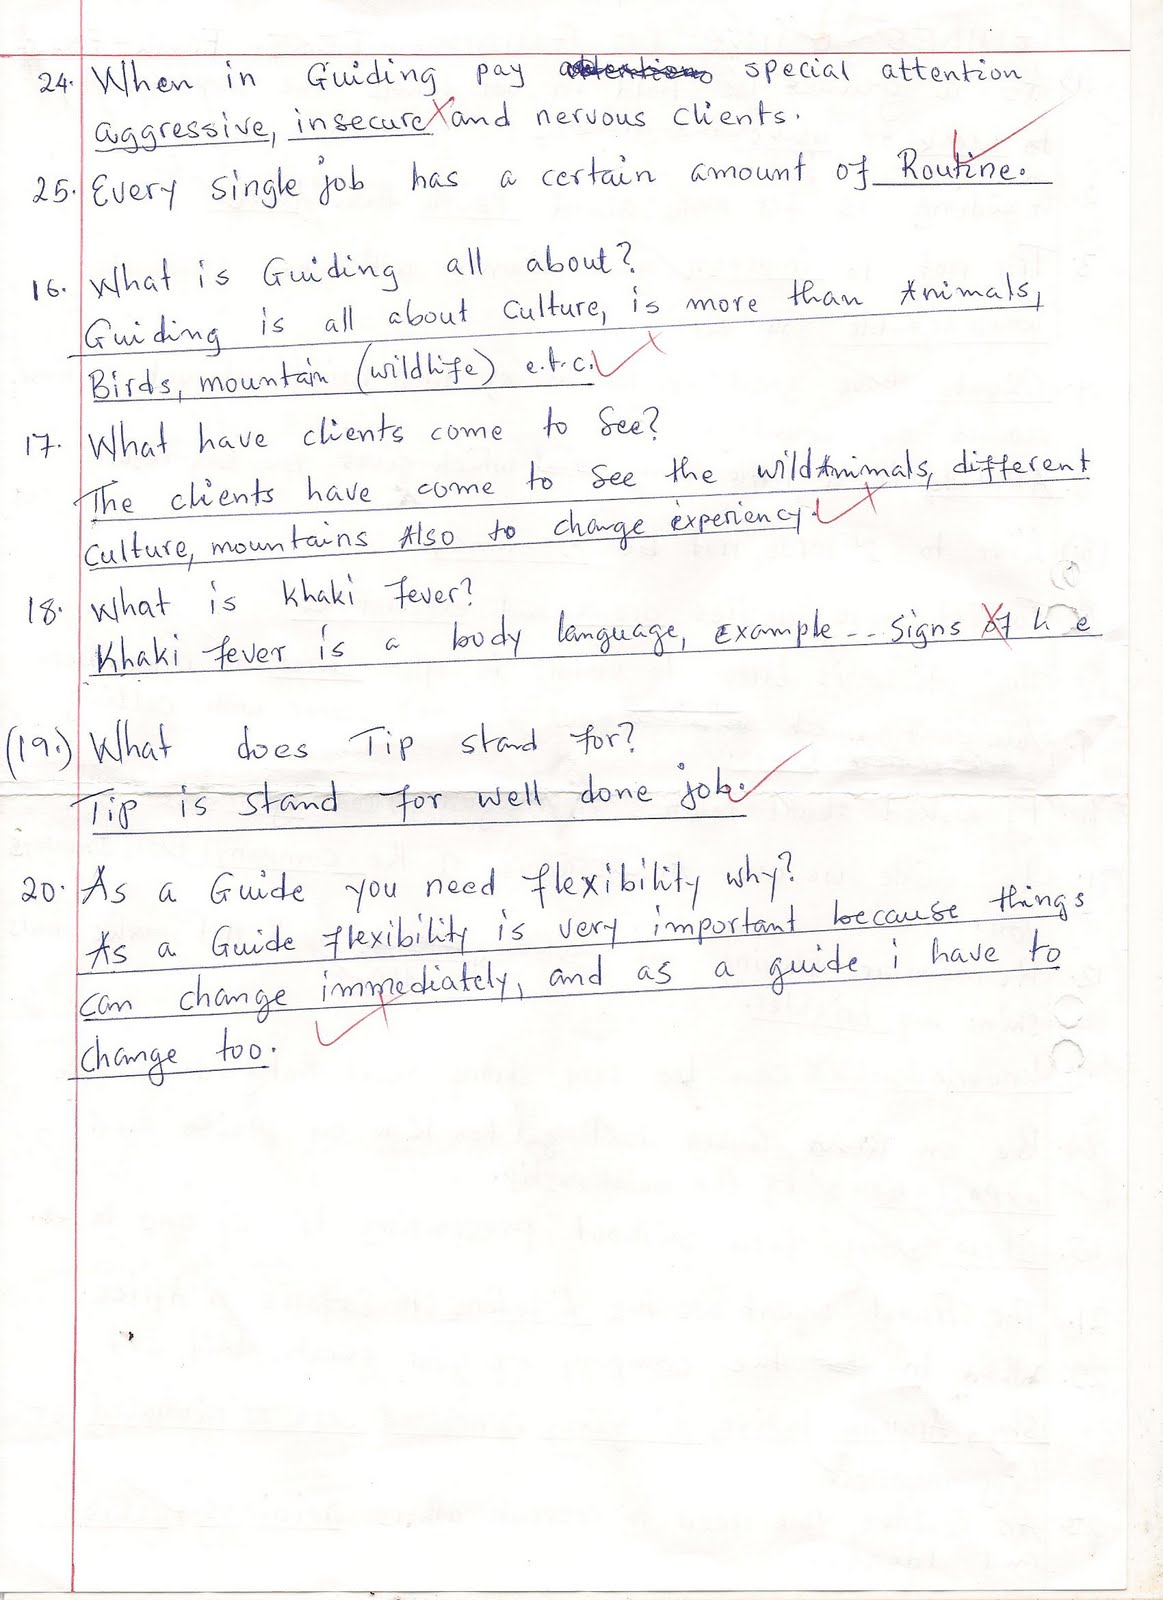 24. When in Guiding pay special attention
aggressive, insecure and nervous clients.
25. Every single job has a certain amount of Routine.
16. What is Guiding all about?
Guiding is all about culture, is more than Animals,
Birds, mountain (wildlife) e.t.c.
17. What have clients come to see?
The clients have come to see the wild Animals, different
culture, mountains Also to change experiency.
18. What is Khaki fever?
Khaki fever is a body language, example -- signs of h e
(19.) What does Tip stand for?
Tip is stand for well done job.
20. As a Guide you need flexibility why?
As a Guide flexibility is very important because things
can change immediately, and as a guide i have to
change too.